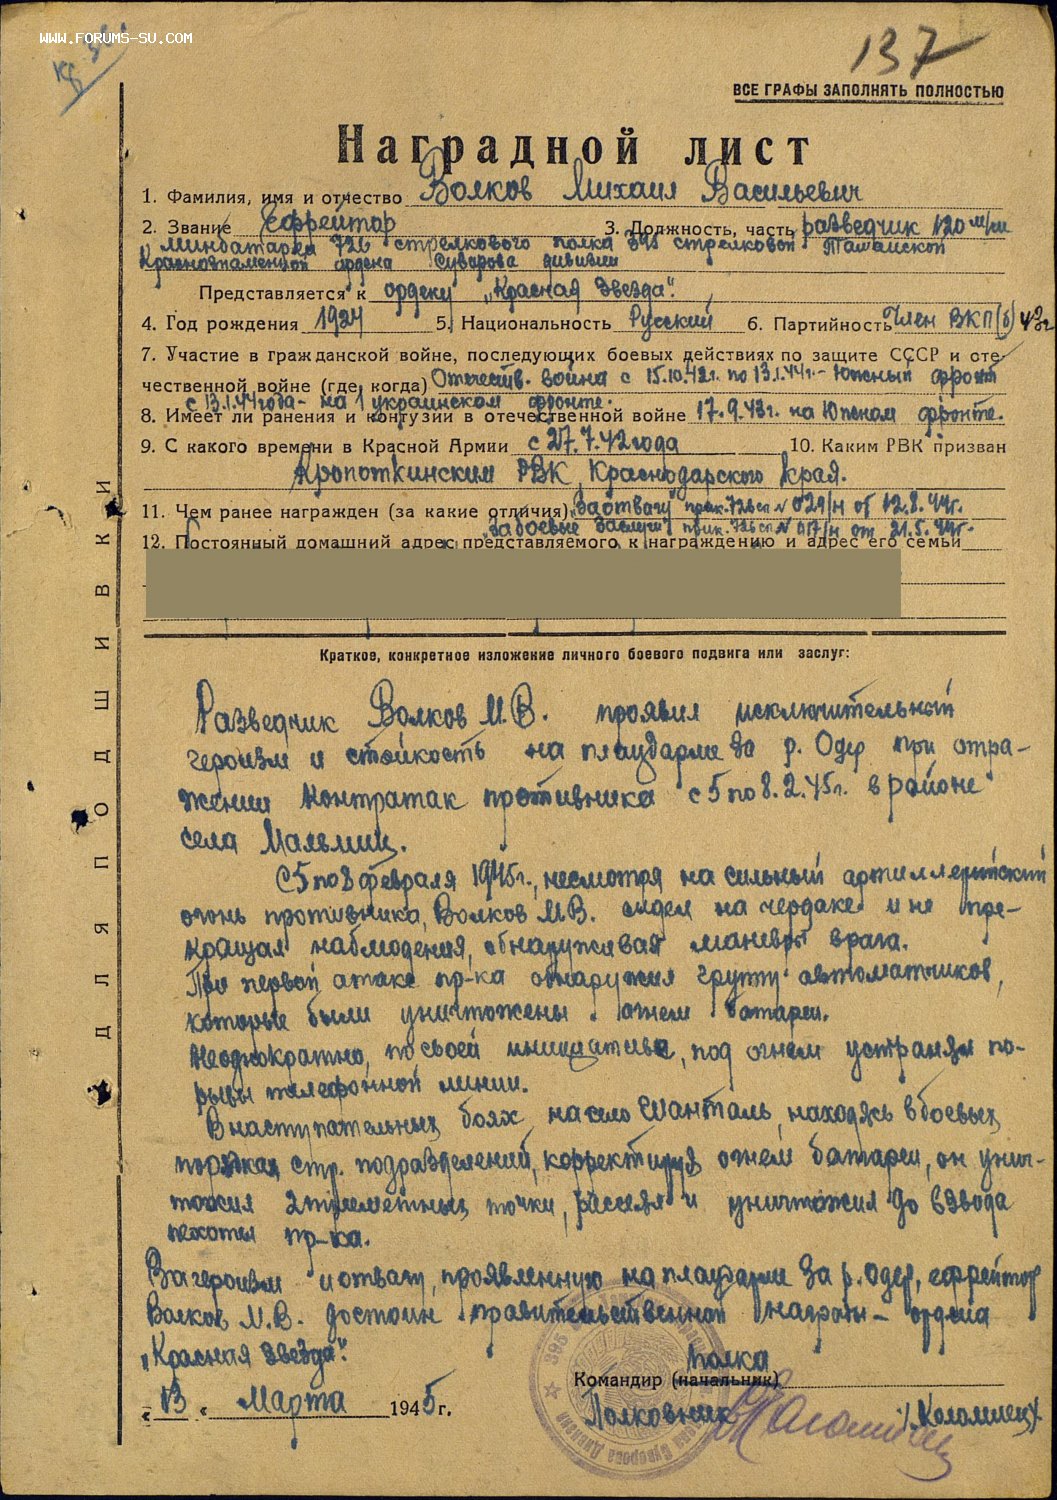 WWW.FORUMS-SU.COM
137
ВСЕ ГРАФЫ ЗАПОЛНЯТЬ ПОЛНОСТЬЮ
Наградной лист
1. Фамилия, имя и отчество Волков Михаил Васильевич
2. Звание Ефрейтор 3. Должность, часть разведчик 120 м/м
минбатареи 726 стрелкового полка 395 стрелковой Таманской
Краснознаменной ордена Суворова дивизии
Представляется к ордену „Красная Звезда".
4. Год рождения 1924 5. Национальность Русский 6. Партийность Член ВКП(б) 43г
7. Участие в гражданской войне, последующих боевых действиях по защите СССР и оте-
чественной войне (где, когда) Отечеств. война с 15.10.42г. по 13.1.44г.- Южный фронт
с 13.1.44 года - на 1 украинском фронте.
8. Имеет ли ранения и контузии в отечественной войне 17.9.43г. на Южном фронте.
9. С какого времени в Красной Армии с 27.7.42 года 10. Каким РВК призван
Кропоткинским РВК, Краснодарского Края.
11. Чем ранее награжден (за какие отличия) „За отвагу" прик. 726 сп № 029/н от 12.8.44г.
„За боевые заслуги" прик. 726 сп № 017/н от 21.5.44г.
12. Постоянный домашний адрес представляемого к награждению и адрес его семьи
ДЛЯ ПОДШИВКИ
Краткое, конкретное изложение личного боевого подвига или заслуг:
Разведчик Волков М.В. проявил исключительный
героизм и стойкость на плацдарме за р. Одер при отра-
жении контратак противника с 5 по 8.2.45г. в районе
села Мальмиц.
С 5 по 8 февраля 1945г., несмотря на сильный артиллерийский
огонь противника, Волков М.В. сидел на чердаке и не пре-
кращая наблюдения, обнаруживая маневры врага.
При первой атаке пр-ка обнаружил группу автоматчиков,
которые были уничтожены огнем батареи.
Неоднократно, по своей инициативе, под огнем устранял по-
рывы телефонной линии.
В наступательных боях на село Шанталь, находясь в боевых
порядках стр. подразделений, корректируя огнем батареи, он унич-
тожил 2 пулеметных точки, рассеял и уничтожил до взвода
пехоты пр-ка.
За героизм и отвагу, проявленную на плацдарме за р. Одер, ефрейтор
Волков М.В. достоин правительственной награды - ордена
„Красная Звезда".
полка
Командир (начальник)
„13" Марта 1945 г. Полковник /Коломиец/